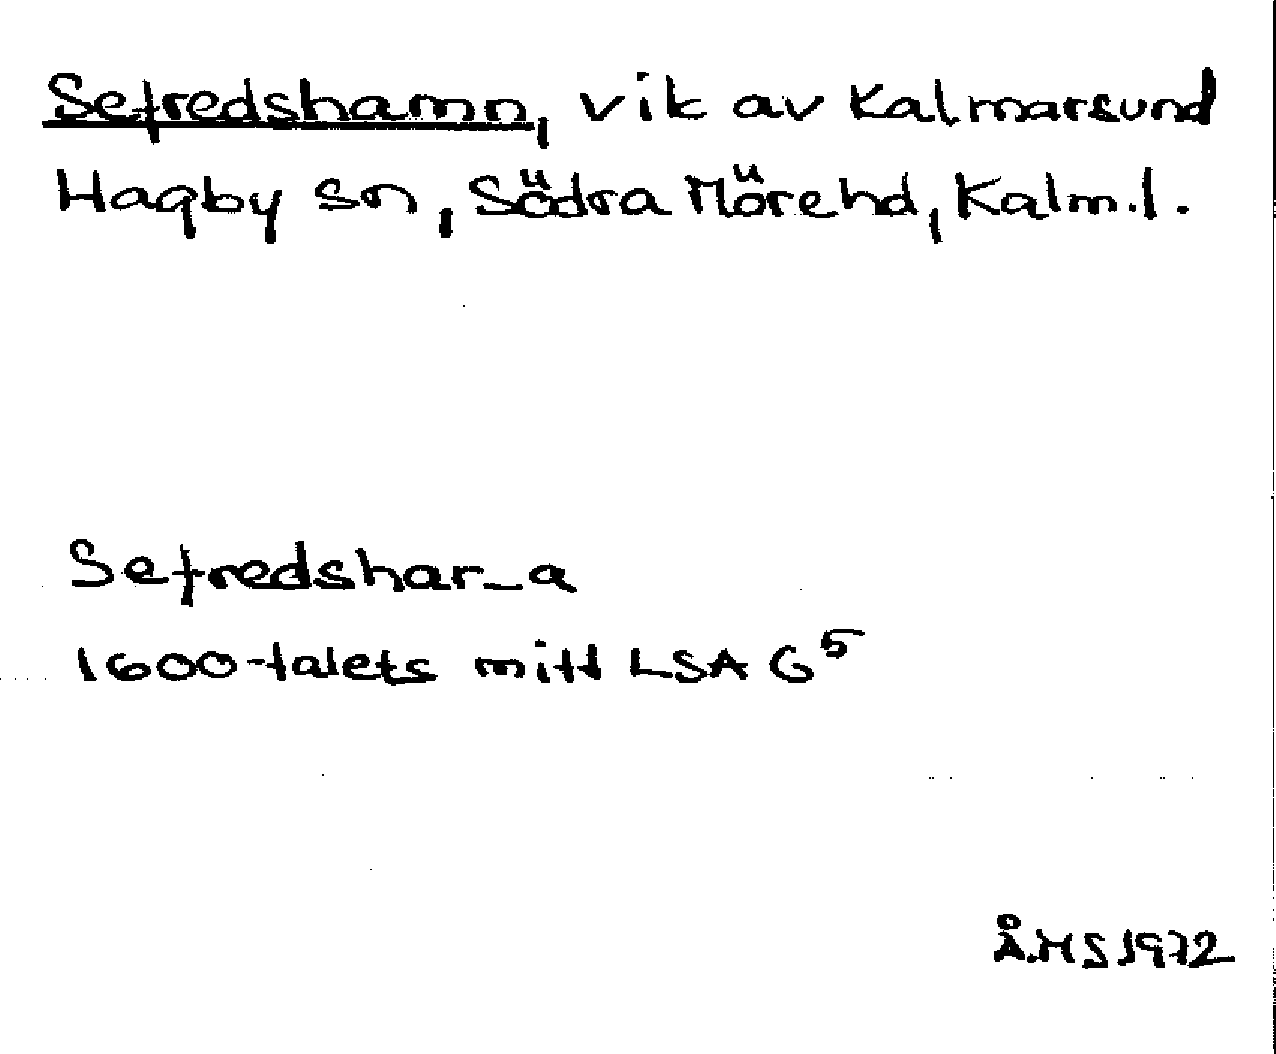 Sefredshamn, vik av Kalmarsund
Hagby sn, Södra Möre hd, Kalm. l.
Sefredshar_a
1600-talets mitt LSA G5
Å.H S 1972